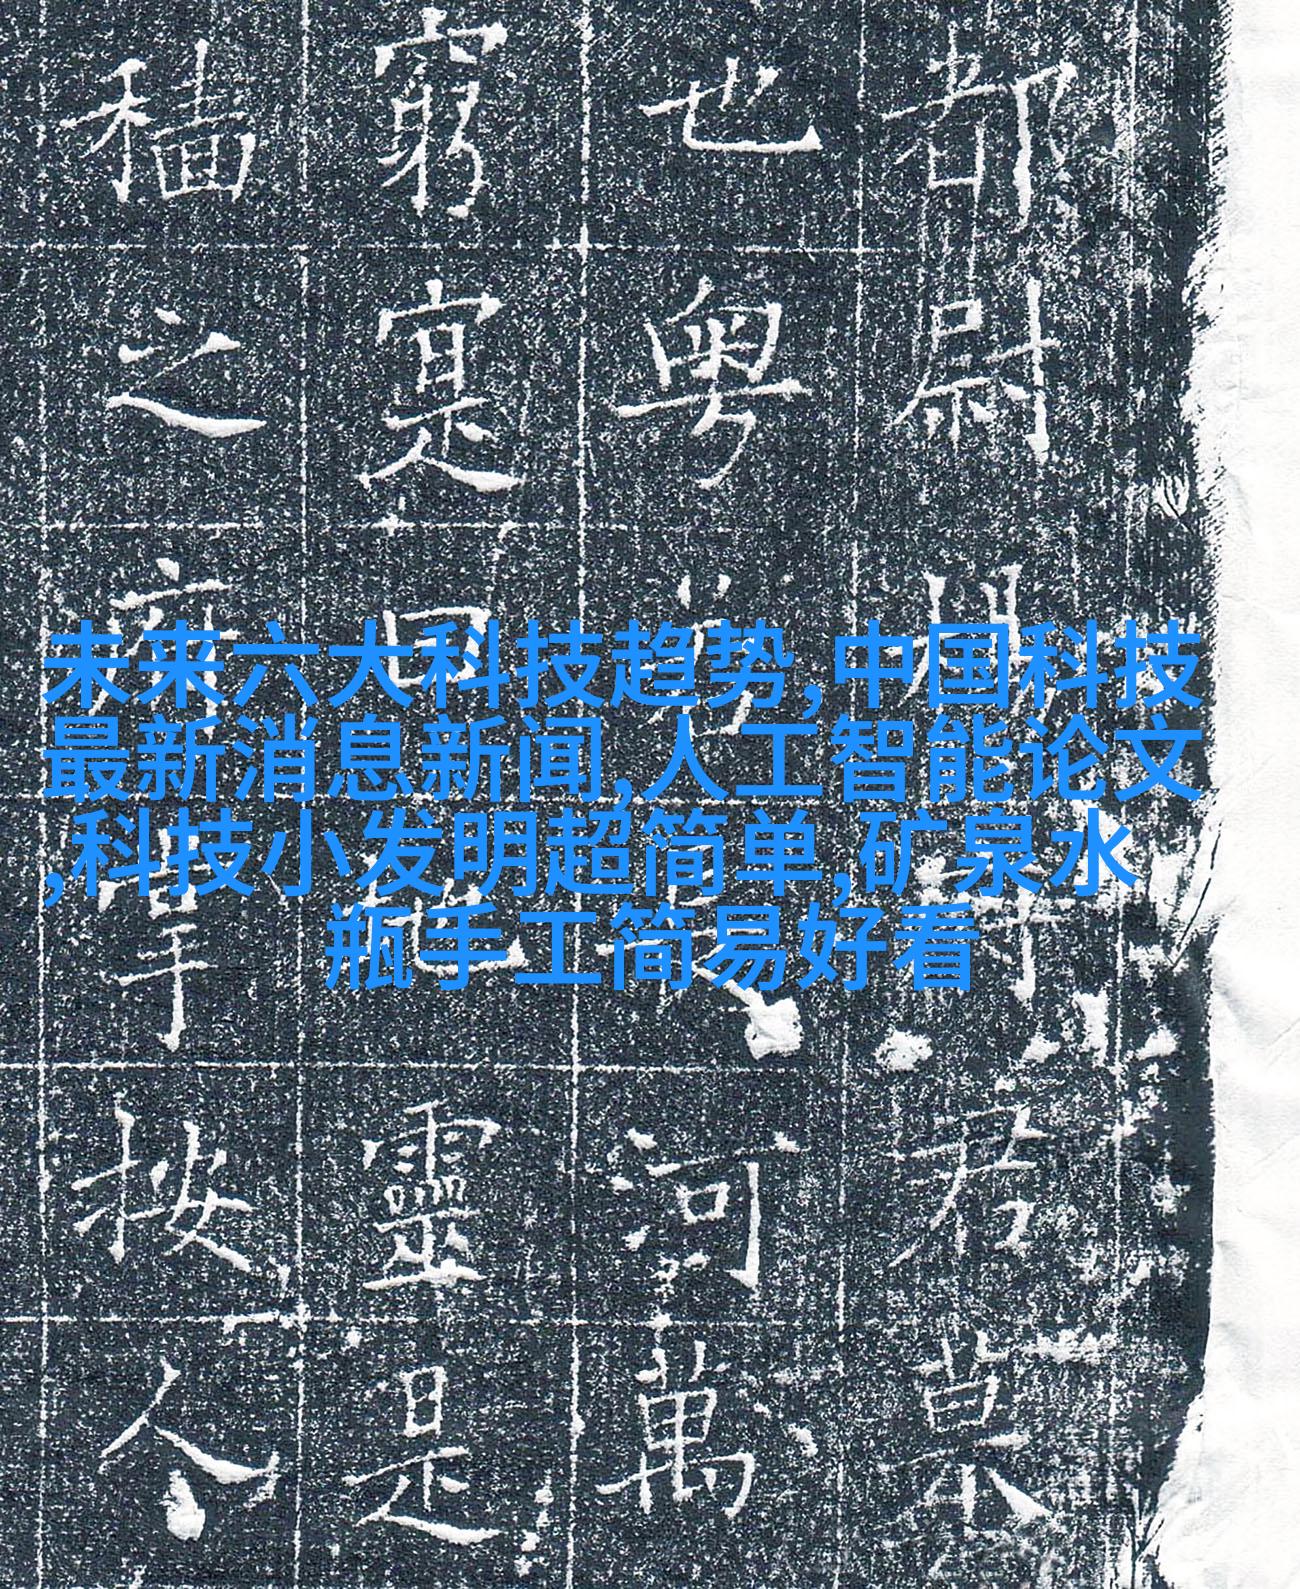 未来六大科技趋势,中国科技
最新消息新闻,人工智能论文
,科技小发明超简单,矿泉水
瓶手工简易好看
都尉君
也粵河萬
窮寔靈是
穡之按人